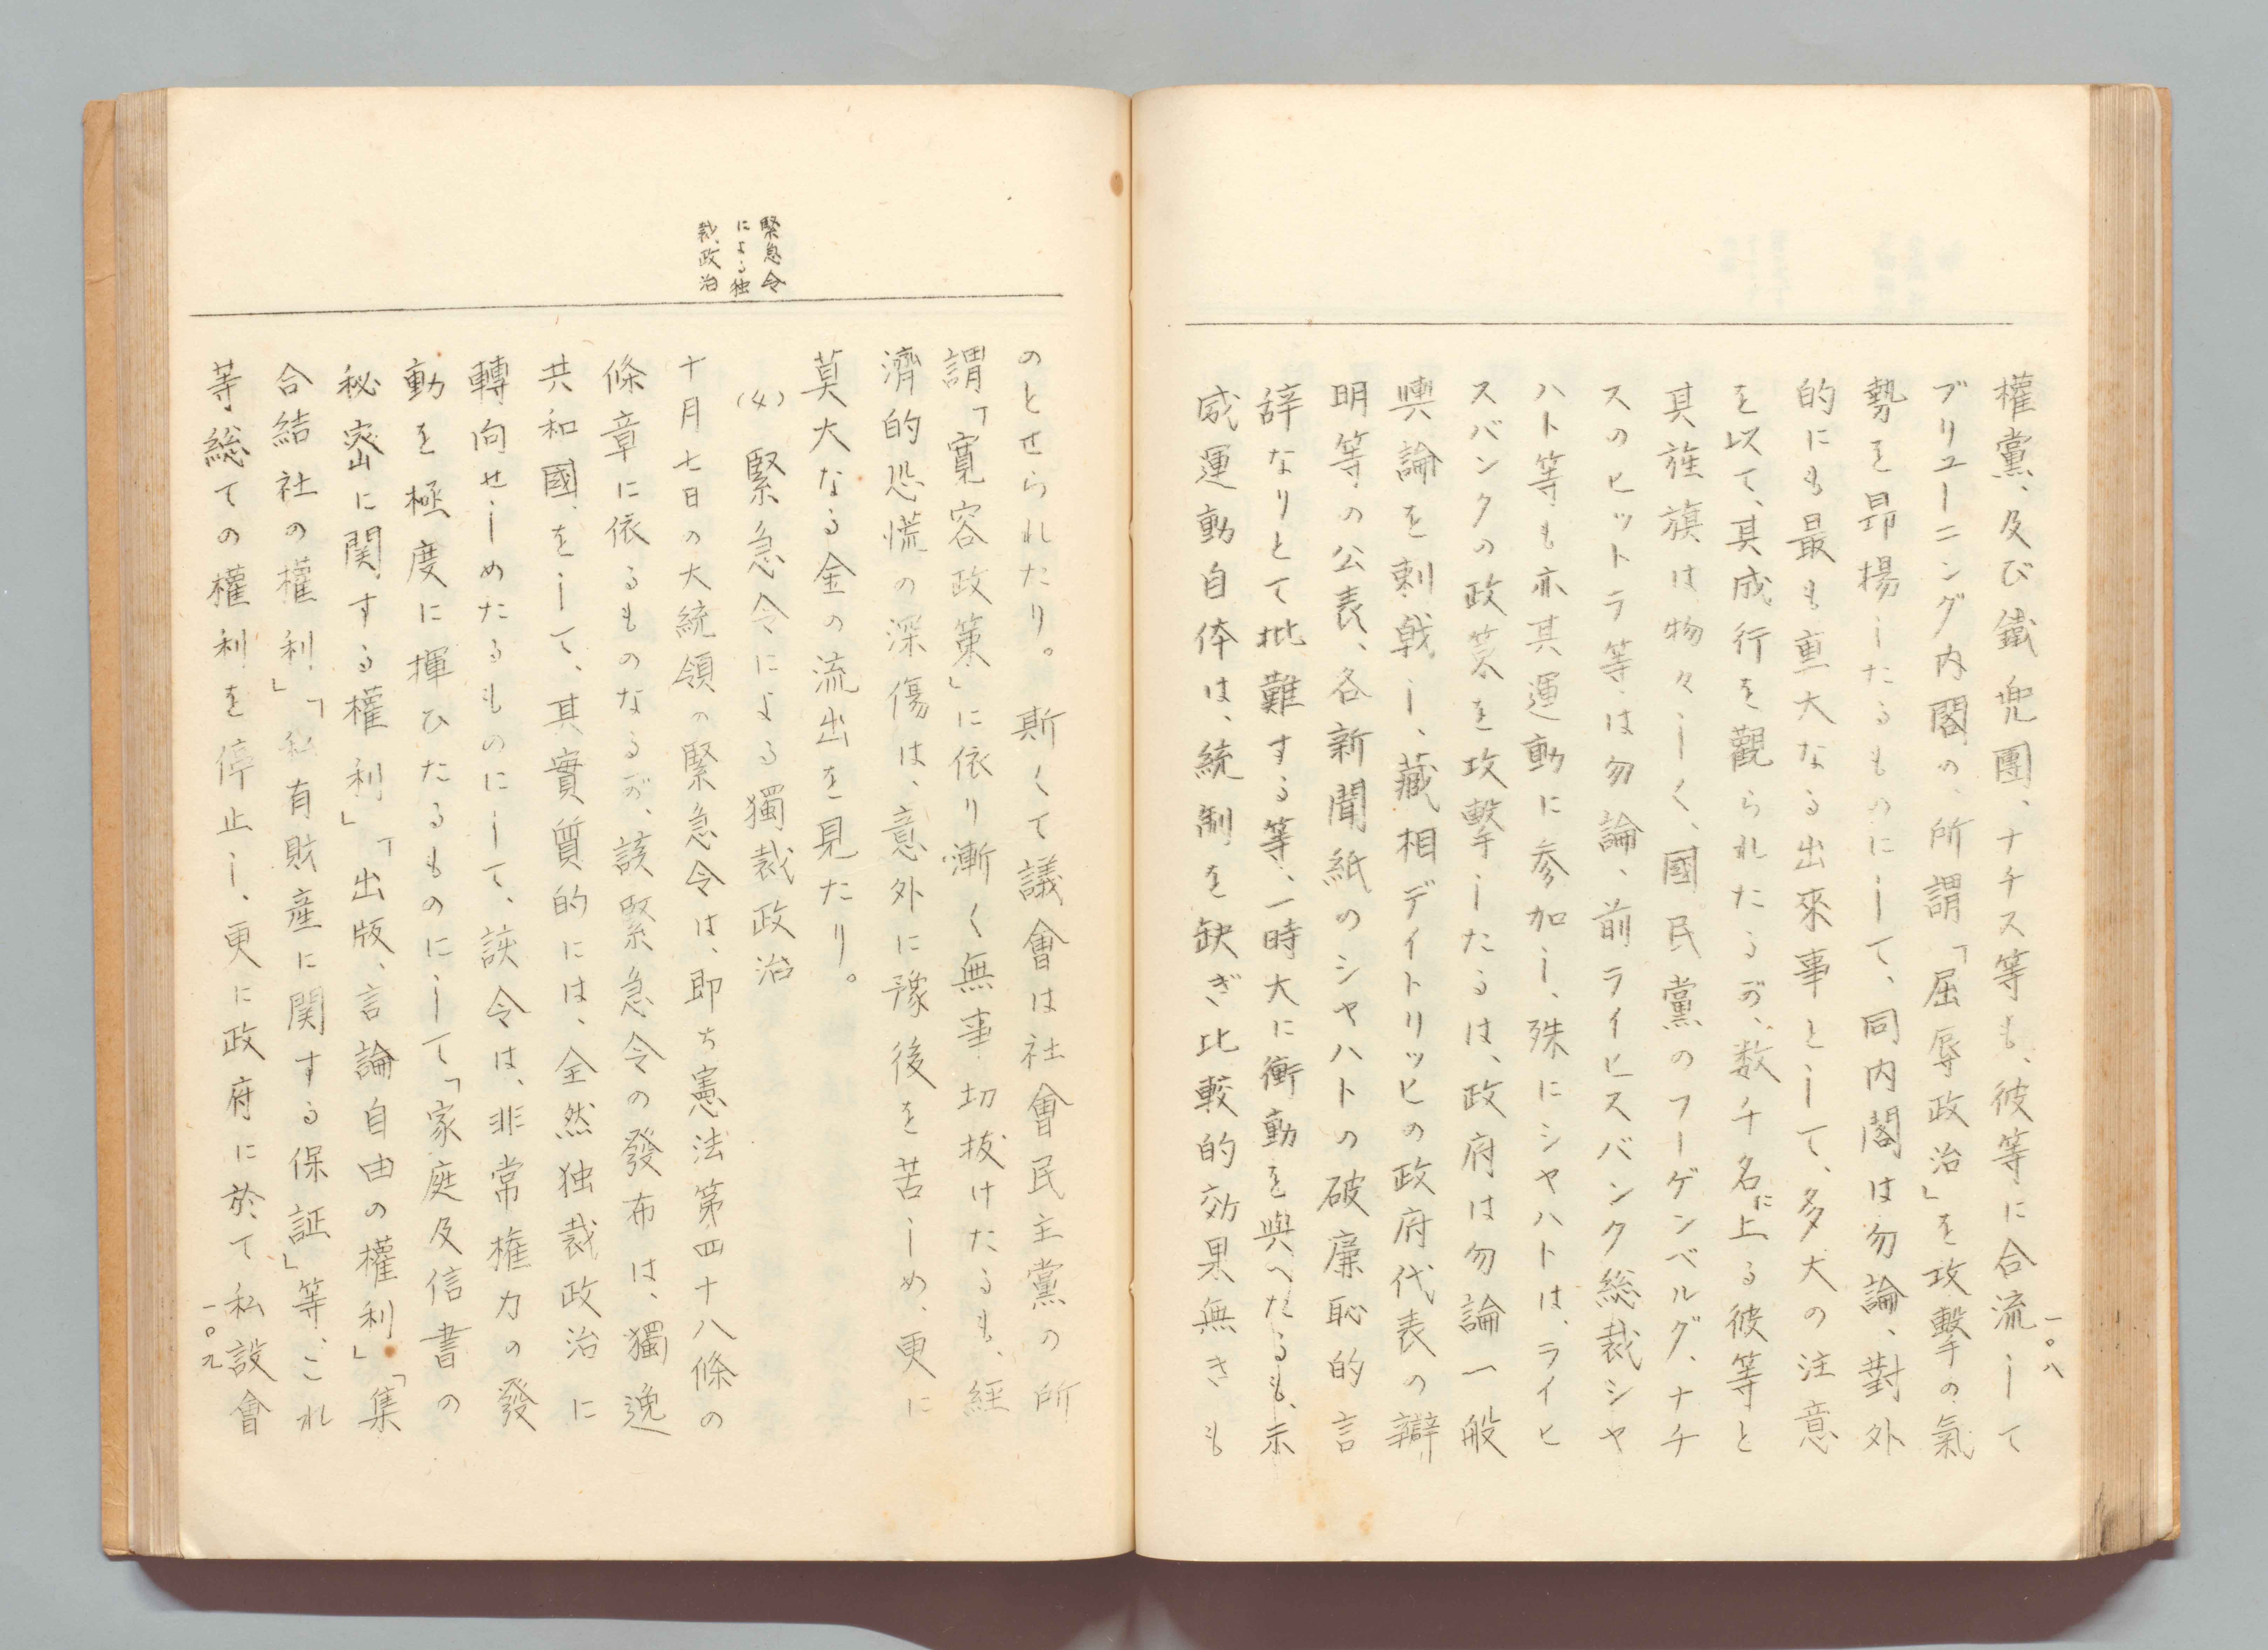 權黨、及び鐵兜團、ナチス等も、彼等に合流して
ブリューニング内閣の、所謂「屈辱政治」を攻擊の氣
勢を昻揚したるものにして、同内閣は勿論、對外
的にも最も重大なる出來事として、多大の注意
を以て、其成行を觀られたるが、数千名に上る彼等と
其旌旗は物々しく、國民黨のフーゲンベルグ、ナチ
スのヒットラ等は勿論、前ライヒスバンク総裁シャ
ハト等も亦其運動に参加し、殊にシャハトは、ライヒ
スバンクの政策を攻擊したるは、政府は勿論一般
輿論を刺戟し、藏相ディトリッヒの政府代表の辯
明等の公表、各新聞紙のシャハトの破廉恥的言
辞なりとて批難する等、一時大に衝動を與へたるも、示
威運動自体は、統制を缺ぎ比較的効果無きも
一〇八
のとせられたり。斯くて議會は社會民主黨の所
謂「寛容政策」に依り漸く無事切抜けたるも、経
濟的恐慌の深傷は、意外に豫後を苦しめ、更に
莫大なる金の流出を見たり。
緊急令
による独
裁政治
(4) 緊急令による獨裁政治
十月七日の大統領の緊急令は、即ち憲法第四十八條の
條章に依るものなるが、該緊急令の發布は、獨逸
共和國をして、其實質的には、全然独裁政治に
轉向せしめたるものにして、該令は、非常権力の發
動を極度に揮ひたるものにして「家庭及信書の
秘密に関する權利」「出版、言論自由の權利」「集
合結社の權利」「私有財産に関する保証」等、これ
等総ての權利を停止し、更に政府に於て私設會
一〇九